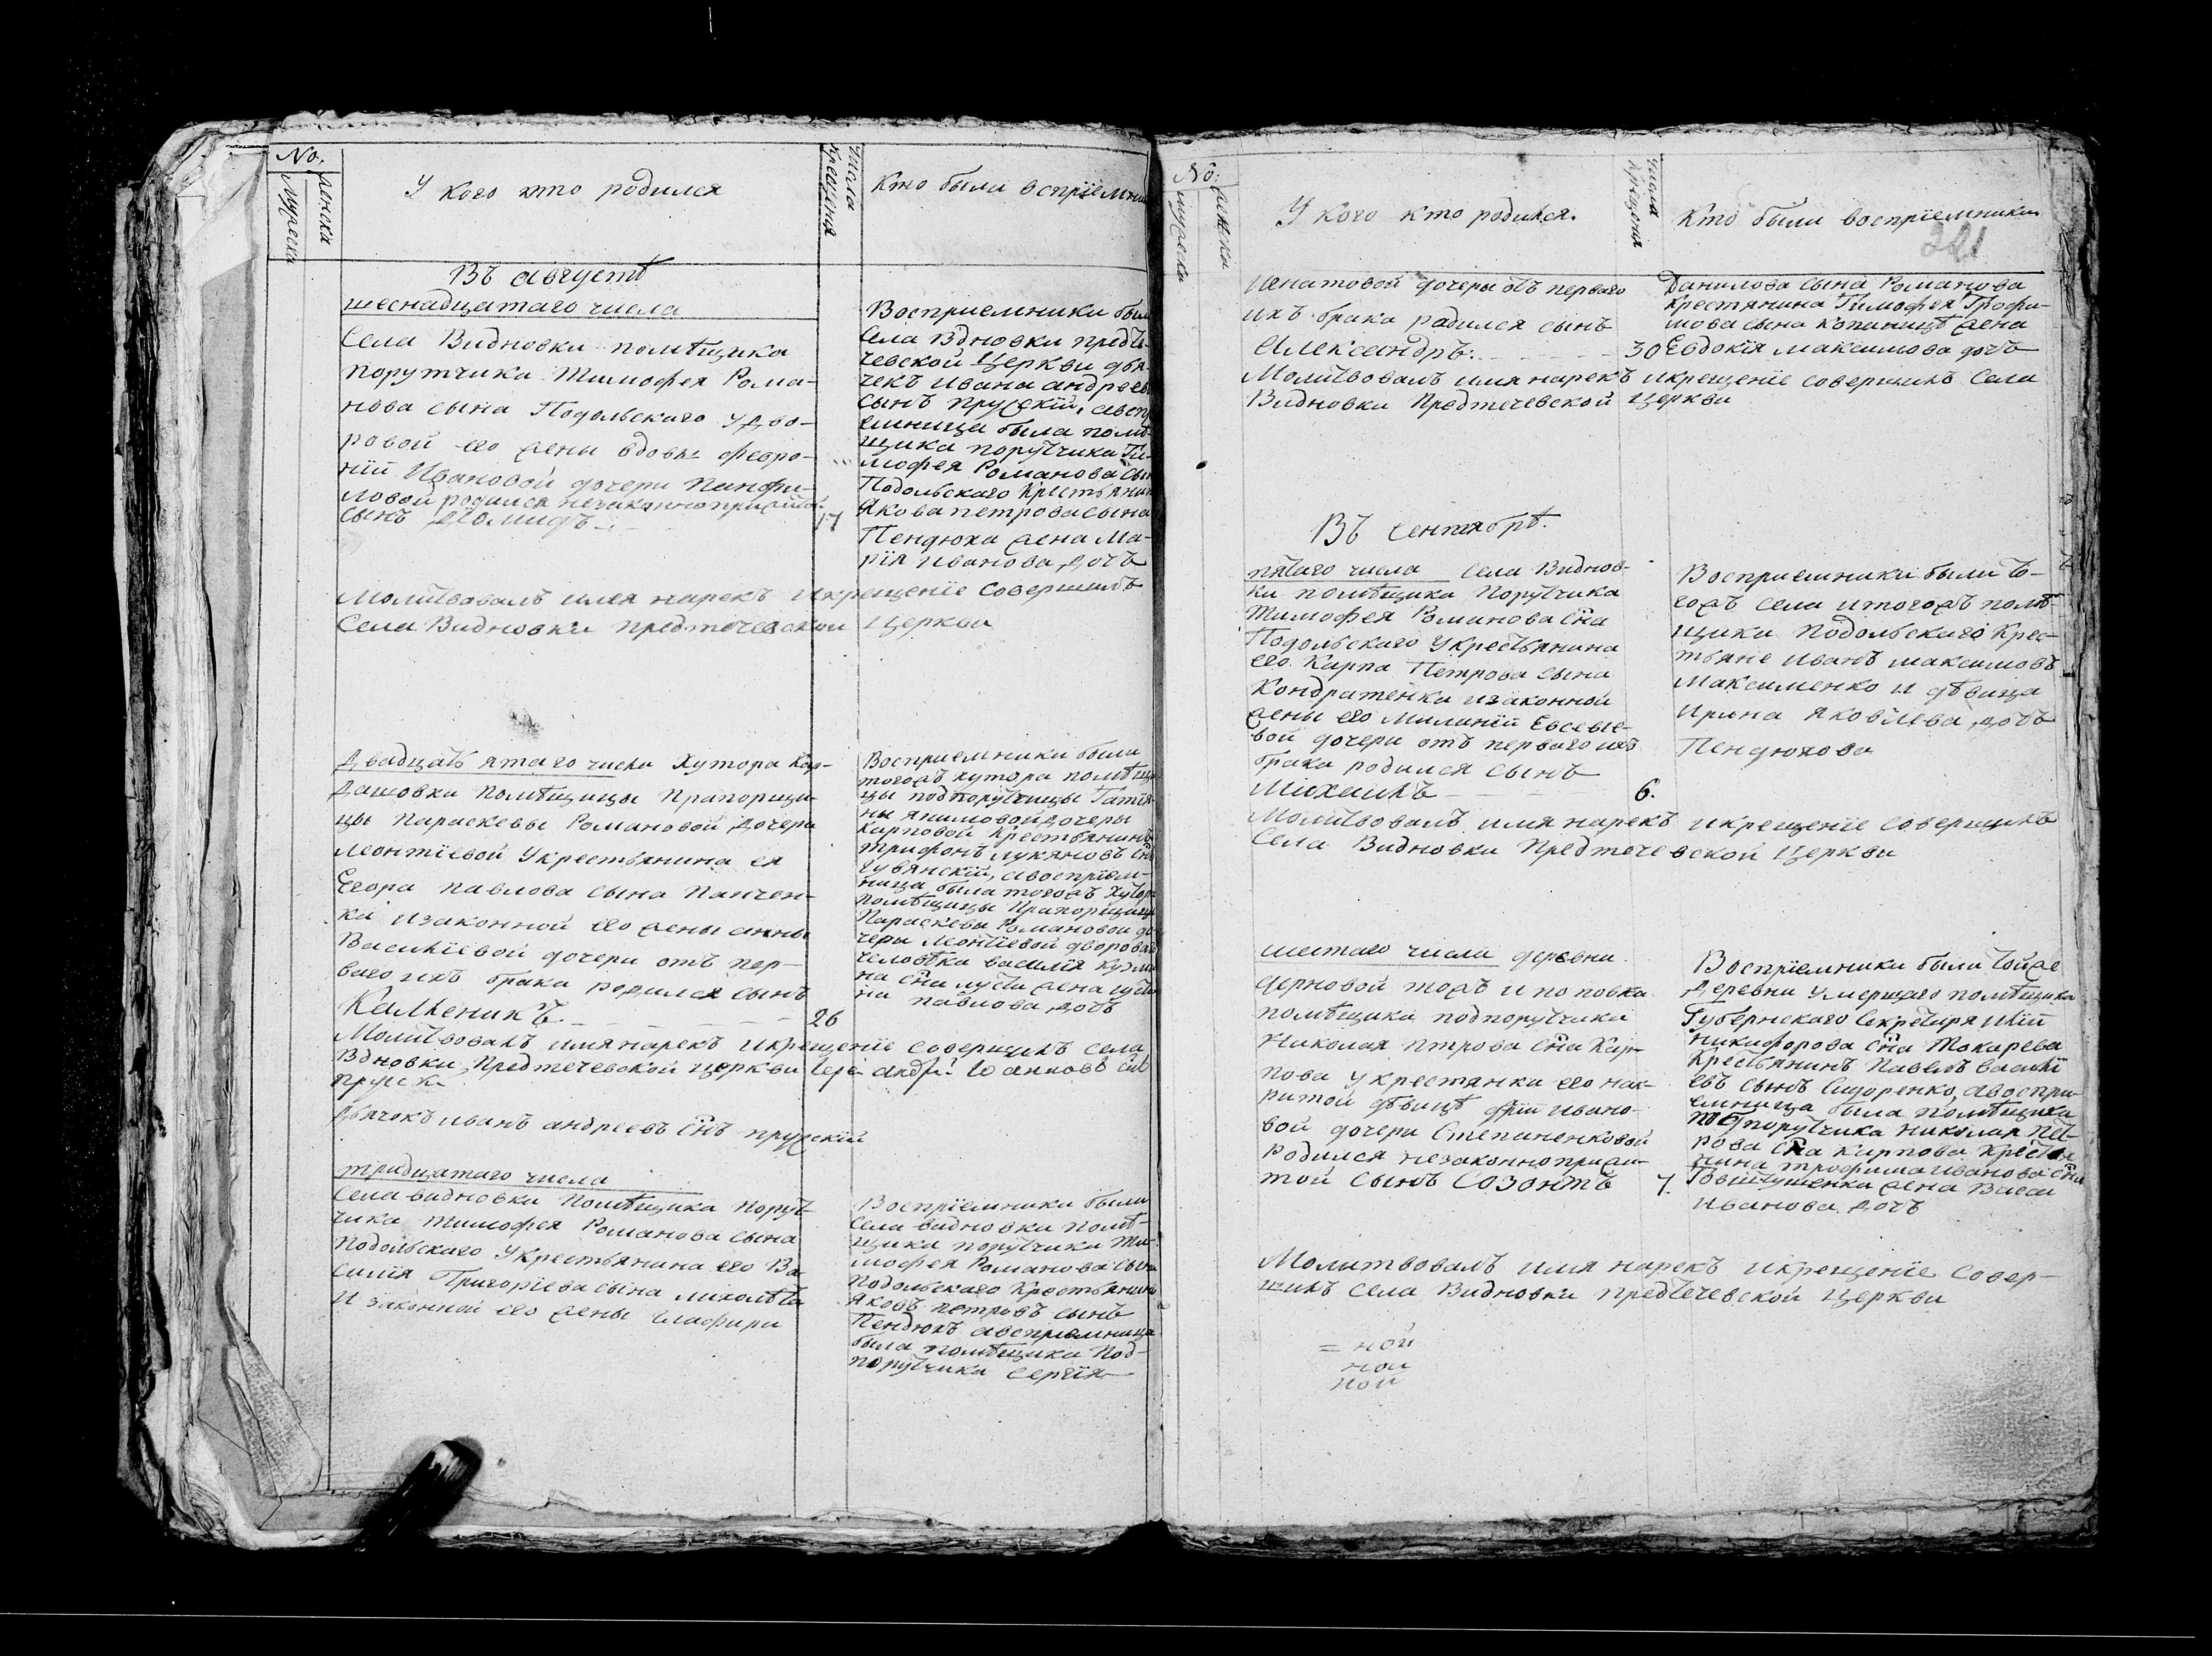 No.
мужеска
женска
У кого кто родился
числа
крещения
Кто были воспріемни
Въ августѣ
шеснадцатаго числа
Села Видновки помѣщика
порутчика Тимофея Рома-
нова сына Подольскаго у дво-
ровой его жены вдовы Февро-
ніи Ивановой дочери Панфи-
ловой родился незаконноприжит.
сынъ Діомидъ
17
Воспріемники были
Села Вдновки предте-
чевской Церкви дья-
чекъ Ивана андреевъ
сынъ Прускій, авспр
емница была помѣ-
щика порутчика Ти-
мофея Романова сын
Подольскаго Крестьянин
Якова петрова сына
Пендюха жена Ма-
рія Иванова дочь
Молитвовалъ имя нарекъ и крещеніе совершилъ
Села Видновки предтечевской Церкви
Двадцать пятаго числа Хутора Кар-
дашовки Помѣщицы Прапорщи-
цы Параскевы Романовой дочери
Леонтіевой у крестьянина ея
Егора павлова сына Панчен-
ка и законной его жены анны
Василіевой дочери отъ пер-
ваго ихъ брака родился сынъ
Каллиникъ.
26
Воспріемники были
тогожъ хутора помѣщи
цы подпорутчицы Татія-
ны якимовой дочеры
Карповой Крестьянинъ
трифонъ лукяновъ снъ
авоспріем-
ница была тогожъ хутора
помѣщицы Прапорщицы
Параскевы Романовой до-
черы Леонтіевой дворова
человѣка василія Кузми
на сна жена
павлова дочь
Молитвовалъ имя нарекъ и крещеніе совершилъ села
Вдновки, Предтечевской церкви іерей андрій Іоанновъ снъ
Прускі
Дьячокъ иванъ андреевъ снъ прускій
тридцатаго числа
Села видновки Помѣщика Порут-
чика Тимофея Романова сына
Подольскаго У крестьянина его Ва
силія Григоріева сына
и законной его жены Глафири
Воспріемники были
Села видновки помѣ-
щика порутчика Ти-
мофея Романова сына
Подольскаго Крестьянин
Яковъ петровъ сынъ
Пендюхъ авспріемница
была помѣщика Под-
порутчика Сергія
No:
мужеска
женска
У кого кто родился.
числа
крещения
Кто были воспріемники
Игнатовой дочеры отъ перваго
ихъ брака радился сынъ
Александръ.
30
Данилова сына Романова
Крестянина Тимофея Трофи-
мова сына жена
Евдокія максимова дочь
Молитвовалъ имя нарекъ и крещеніе совершилъ Села
Видновки Предтечевской Церкви
Въ Сентябрѣ.
пятаго числа Села Виднов-
ки помѣщика Порутчика
Тимофея Романова Сна
Подольскаго У крестьянина
его Карпа Петрова сына
Кондратенка и законной
жены его Миланіи Евсеые-
вой дочери отъ перваго ихъ
брака родился сынъ
Михаилъ
6.
Воспріемники были то-
гожъ села и тогожъ помѣ-
щика Подольскаго Крес-
тьяне Иванъ максимовъ
Максименко и дѣвица
Ирина Яковлева дочь
Пендюхова
Молитвовалъ имя нарекъ и крещеніе совершилъ
Села Видновки Предтечевской Церкви
шестаго числа деревни
Черновой тожъ и поповка
помѣщика подпорутчика
Николая птрова сна Кар-
пова у крестянки его нак-
ритой дѣвицѣ Ивано-
вой дочери Степаненковой
родился незаконноприжи-
той сынъ Созонтъ
7.
Воспріемники были тойже
деревни умершаго помѣщика
Губернскаго Секретаря Иліи
Никифорова сна Токарева
Крестьянинъ Павелъ Василі
евъ сынъ Сидоренко, авоспрі-
емница была помѣщика
порутчика Николая Пет-
рова сна Карпова Крестья
нина трофима иванова сна
жена Васса
Иванова дочь
Молитвовалъ имя нарекъ и крещеніе совер-
шилъ села Видновки предтечевской Церкви
= ной
ной
ной